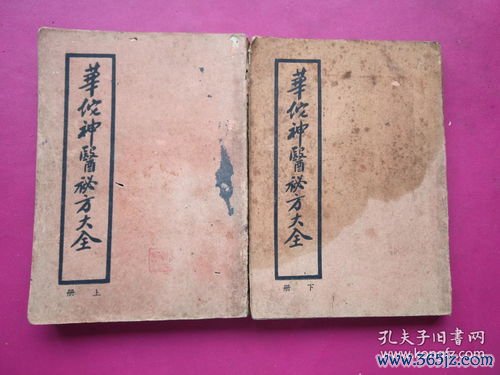 華佗神醫秘方大全
上册
華佗神醫秘方大全
下册
孔夫子旧书网
www.365jz.com